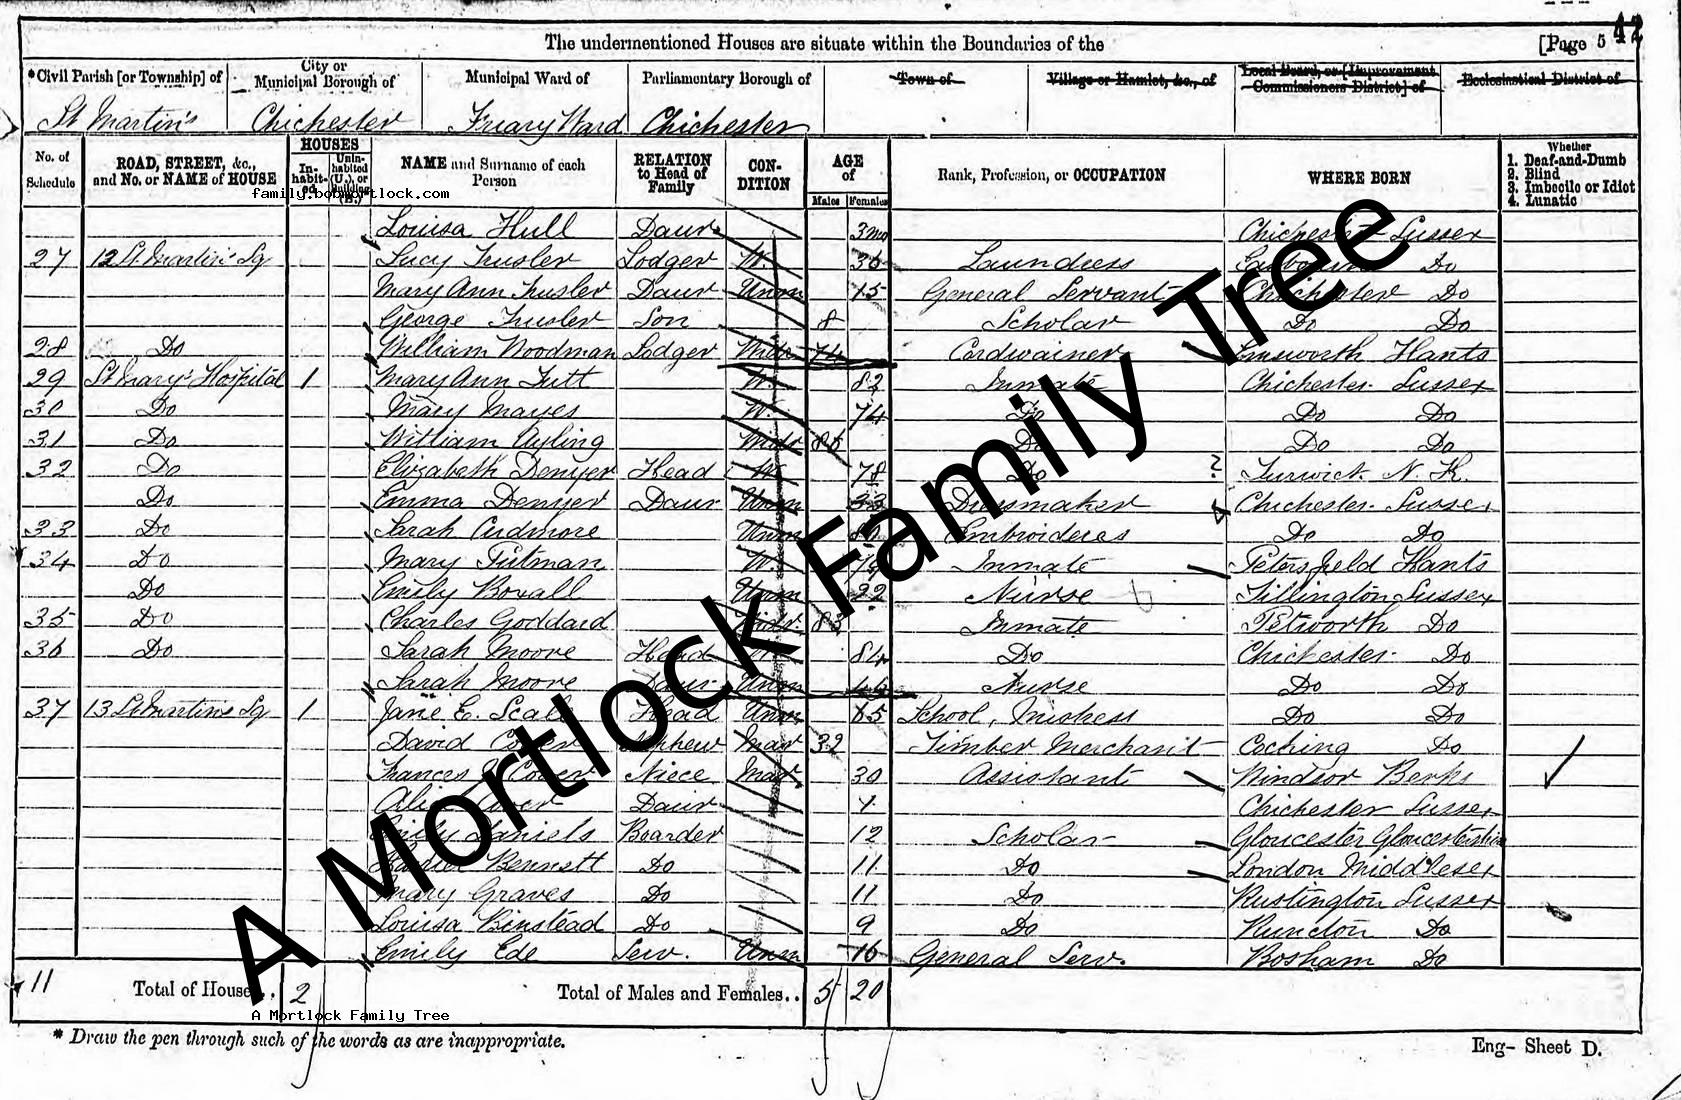 42
The undermentioned Houses are situate within the Boundaries of the [Page 5
*Civil Parish [or Township] of City or Municipal Borough of Municipal Ward of Parliamentary Borough of Town of Village or Hamlet, &c., of Local Board, or [Improvement Commissioners District] of Ecclesiastical District of
St Martin's Chichester Friary Ward Chichester
No. of Schedule ROAD, STREET, &c., and No. or NAME of HOUSE HOUSES Inhabited Uninhabited (U.), or Building (B.) NAME and Surname of each Person RELATION to Head of Family CONDITION AGE of Males Females Rank, Profession, or OCCUPATION WHERE BORN Whether 1. Deaf-and-Dumb 2. Blind 3. Imbecile or Idiot 4. Lunatic
family.bobmortlock.com
Louisa Hull Daur 3mo Chichester Sussex
27 12 St Martin's Sq Lucy Trusler Lodger W. 36 Laundress Do
Mary Ann Trusler Daur Unm 15 General Servant Chichester Do
George Trusler Son 8 Scholar Do Do
28 Do William Woodman Lodger Widr 74 Cordwainer Emsworth Hants
29 St Mary's Hospital 1 Mary Ann Tutt W. 82 Inmate Chichester Sussex
30 Do Mary Mayes W. 74 Do Do Do
31 Do William Ayling Widr Do Do Do
32 Do Elizabeth Denyer Head W. 78 Do ? N. K.
Do Emma Denyer Daur Unm 33 Dressmaker Chichester Sussex
33 Do Sarah Cudmore Unm Embroideress Do Do
34 Do Mary Pitman W. Inmate Petersfield Hants
Do Emily Boxall Unm 22 Nurse Tillington Sussex
35 Do Charles Goddard Widr 83 Inmate Petworth Do
36 Do Sarah Moore Head 84 Do Chichester Do
Sarah Moore Daur Unm Nurse Do Do
37 13 St Martin's Sq 1 Jane E. Head Unm 65 School Mistress Do Do
David Cover Nephew Mar 32 Timber Merchant Cocking Do
Frances Cover Niece Mar 30 Assistant Windsor Berks
Alice Cover Daur Chichester Sussex
Emily Daniels Boarder 12 Scholar Gloucester Gloucestershire
Bennett Do 11 Do London Middlesex
Mary Graves Do 11 Do Rustington Sussex
Louisa Binstead Do 9 Do Runcton Do
Emily Ede Serv. Unm 16 General Serv. Bosham Do
11 Total of Houses.. 2 Total of Males and Females.. 5 20
A Mortlock Family Tree
* Draw the pen through such of the words as are inappropriate.
Eng- Sheet D.
A Mortlock Family Tree